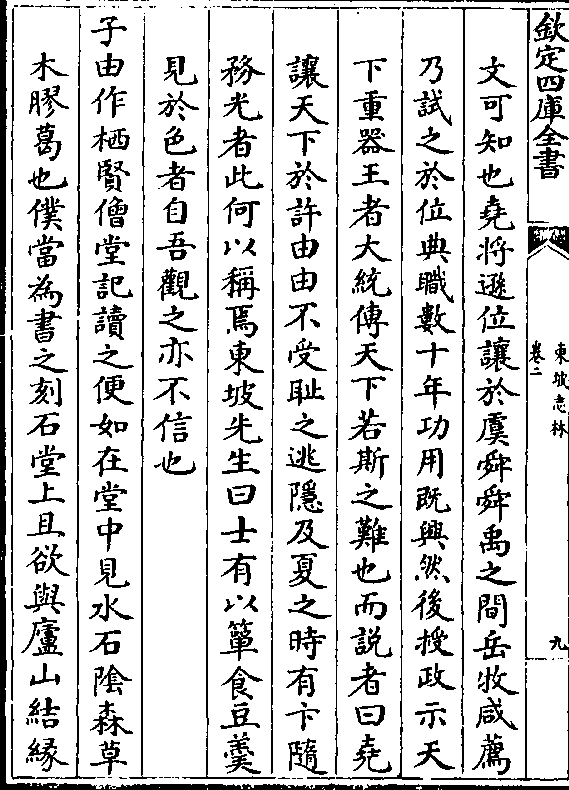 欽定四庫全書
東坡志林
卷二
九
文可知也堯將遜位讓於虞舜舜禹之間岳牧咸薦
乃試之於位典職數十年功用既興然後授政示天
下重器王者大統傳天下若斯之難也而説者曰堯
讓天下於許由由不受耻之逃隱及夏之時有卞隨
務光者此何以稱焉東坡先生曰士有以簞食豆羹
見於色者自吾觀之亦不信也
子由作栖賢僧堂記讀之便如在堂中見水石隂森草
木膠葛也僕當為書之刻石堂上且欲與廬山結縁